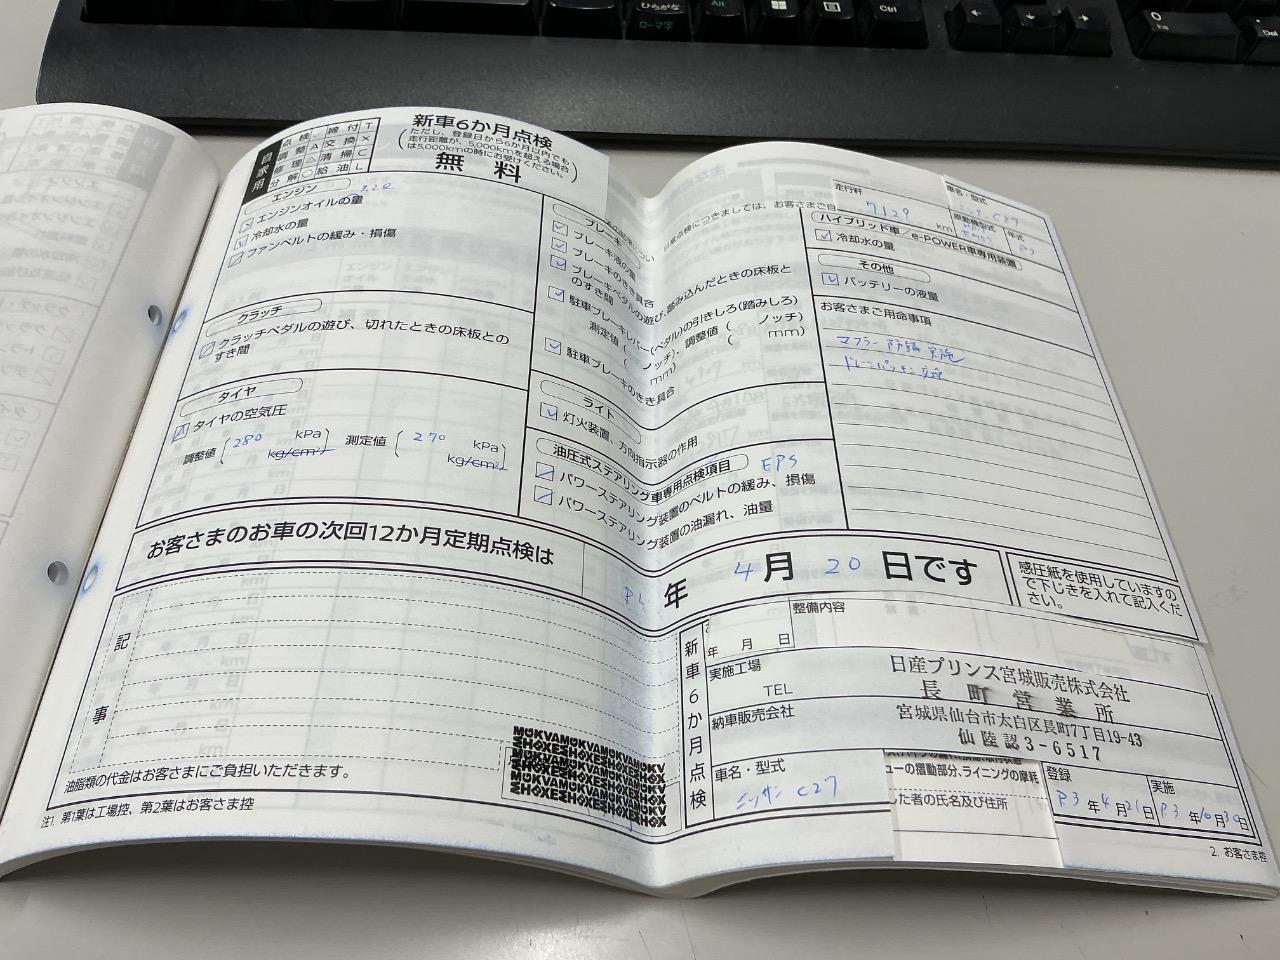 新車6か月点検
(ただし、登録日から6か月以内でも
走行距離が、5,000kmを超える場合
は5,000kmの時にお受けください。)
無料
自家用
点検 ✓ 締付 T
調整 A 交換 ×
修理 △ 清掃 C
分解 ○ 給油 L
エンジン
エンジンオイルの量
冷却水の量
ファンベルトの緩み・損傷
クラッチ
クラッチペダルの遊び、切れたときの床板との
すき間
タイヤ
タイヤの空気圧
調整値 ( 280 kPa 測定値 ( 270 kPa
kg/cm² kg/cm²
ブレーキ
ブレーキ液の量
ブレーキのきき具合
ブレーキペダルの遊び、踏み込んだときの床板と
のすき間
駐車ブレーキレバー(ペダル)の引きしろ(踏みしろ)
測定値( ノッチ)、調整値( ノッチ)
mm) mm)
駐車ブレーキのきき具合
ライト
灯火装置、方向指示器の作用
油圧式ステアリング車専用点検項目 EPS
パワーステアリング装置のベルトの緩み、損傷
パワーステアリング装置の油漏れ、油量
につきましては、お客さまご自
走行粁
7129 km
車名・型式
C27
原動機型式
年式
ハイブリッド車/e-POWER車専用装置
冷却水の量
その他
バッテリーの液量
お客さまご用命事項
マフラー 防錆 実施
ドレーンパッキン交換
お客さまのお車の次回12か月定期点検は
年 4月 20 日です
感圧紙を使用していますの
で下じきを入れて記入くだ
さい。
記事
油脂類の代金はお客さまにご負担いただきます。
注1. 第1葉は工場控、第2葉はお客さま控
新車6か月点検
年 月 日
整備内容
実施工場
TEL
納車販売会社
日産プリンス宮城販売株式会社
長町営業所
宮城県仙台市太白区長町7丁目19-43
仙陸認3-6517
車名・型式
ニッサン C27
ューの摺動部分、ライニングの摩耗
した者の氏名及び住所
登録
R3年4月21日
実施
R3年10月30日
2. お客さま控
ひらがな
ローマ字
Alt
Ctrl
0
Ins
Del